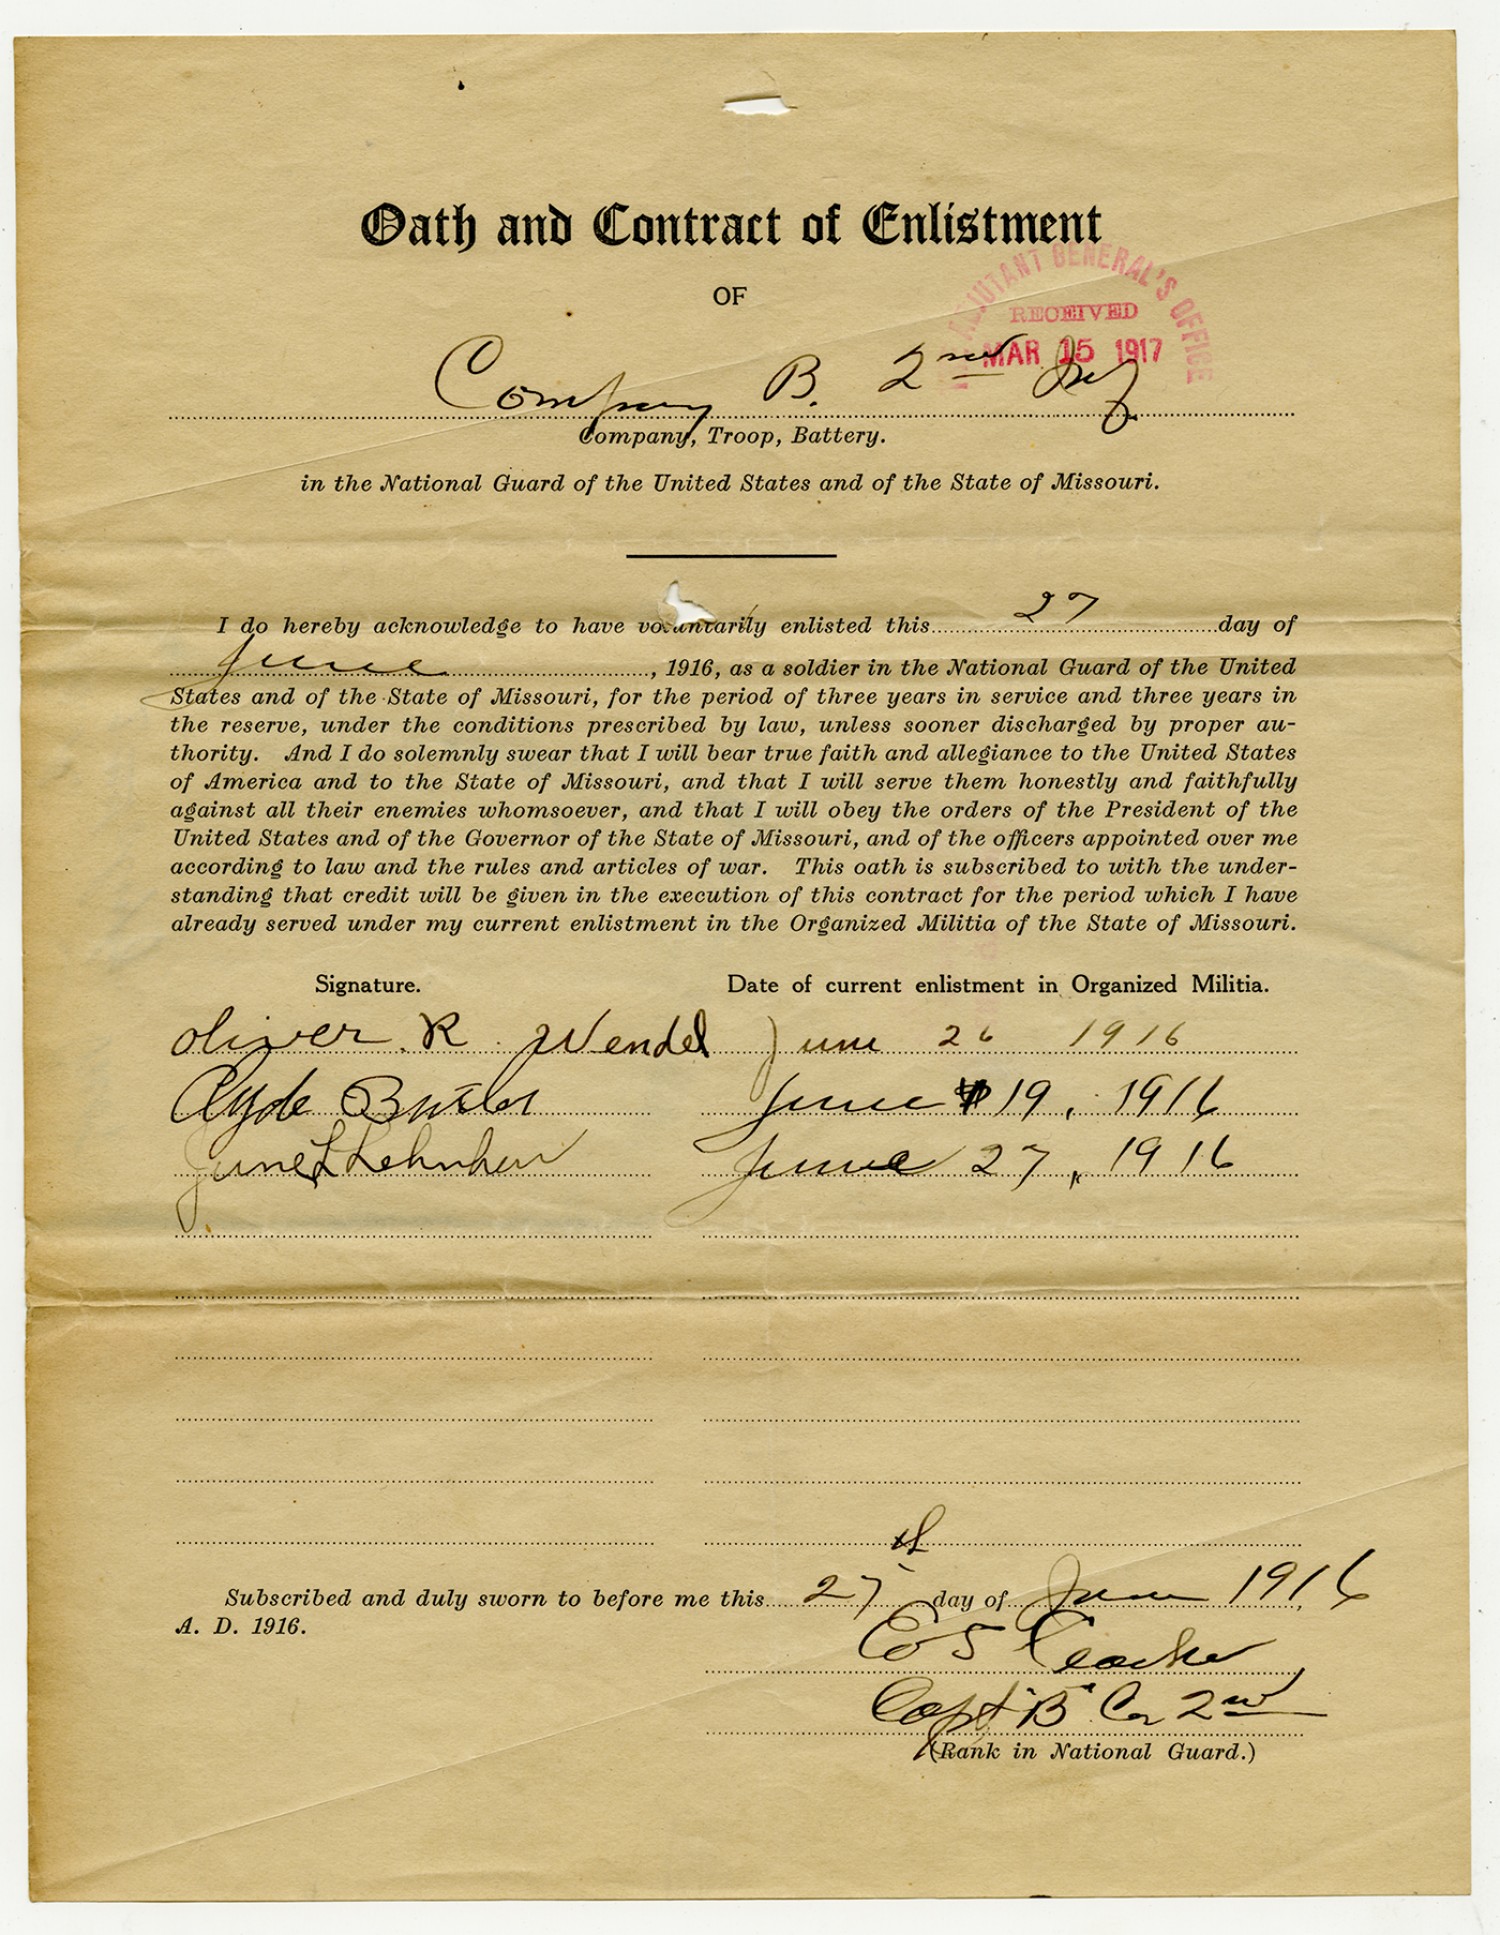 Oath and Contract of Enlistment
OF
ADJUTANT GENERAL'S OFFICE
RECEIVED
MAR 15 1917
Company B. 2nd Inf
Company, Troop, Battery.
in the National Guard of the United States and of the State of Missouri.
I do hereby acknowledge to have voluntarily enlisted this 27 day of
June, 1916, as a soldier in the National Guard of the United
States and of the State of Missouri, for the period of three years in service and three years in
the reserve, under the conditions prescribed by law, unless sooner discharged by proper au-
thority. And I do solemnly swear that I will bear true faith and allegiance to the United States
of America and to the State of Missouri, and that I will serve them honestly and faithfully
against all their enemies whomsoever, and that I will obey the orders of the President of the
United States and of the Governor of the State of Missouri, and of the officers appointed over me
according to law and the rules and articles of war. This oath is subscribed to with the under-
standing that credit will be given in the execution of this contract for the period which I have
already served under my current enlistment in the Organized Militia of the State of Missouri.
Signature. Date of current enlistment in Organized Militia.
Oliver R. Wendel June 26 1916
Clyde June 19, 1916
June L June 27, 1916
Subscribed and duly sworn to before me this 27th day of June 1916
A. D. 1916.
E S
Capt "B" Co 2nd
(Rank in National Guard.)